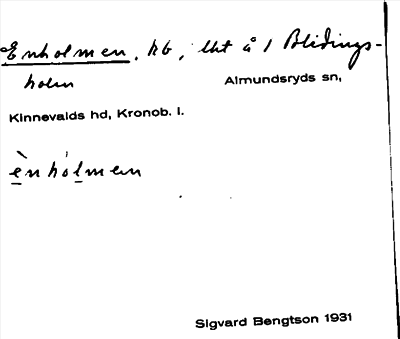 Enholmen, hb, lht å 1 Blidings-
holm Almundsryds sn,
Kinnevalds hd, Kronob. l.
ènhòlmen
Sigvard Bengtson 1931